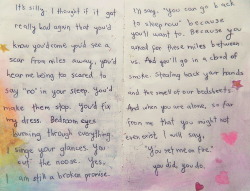 It's silly I thought if it got
really bad again that you'd
know you'd come you'd see a
scar from miles away, you'd
hear me being too scared to
say "no" in your sleep. You'd
make them stop. You'd fix
my dress. Bedroom eyes
burning through everything
singe your glances. You
cut the noose. Yes,
I am still a broken promise.
I'll say, "you can go back
to sleep now" because
you'll want to. Because you
asked for these miles between
us. And you'll go in a cloud of
smoke. Stealing back your hands
and the smell of our bedsheets.
And when you are alone, so far
from me that you might not
even exist, I will say,
"You set me on fire."
you did, you do.